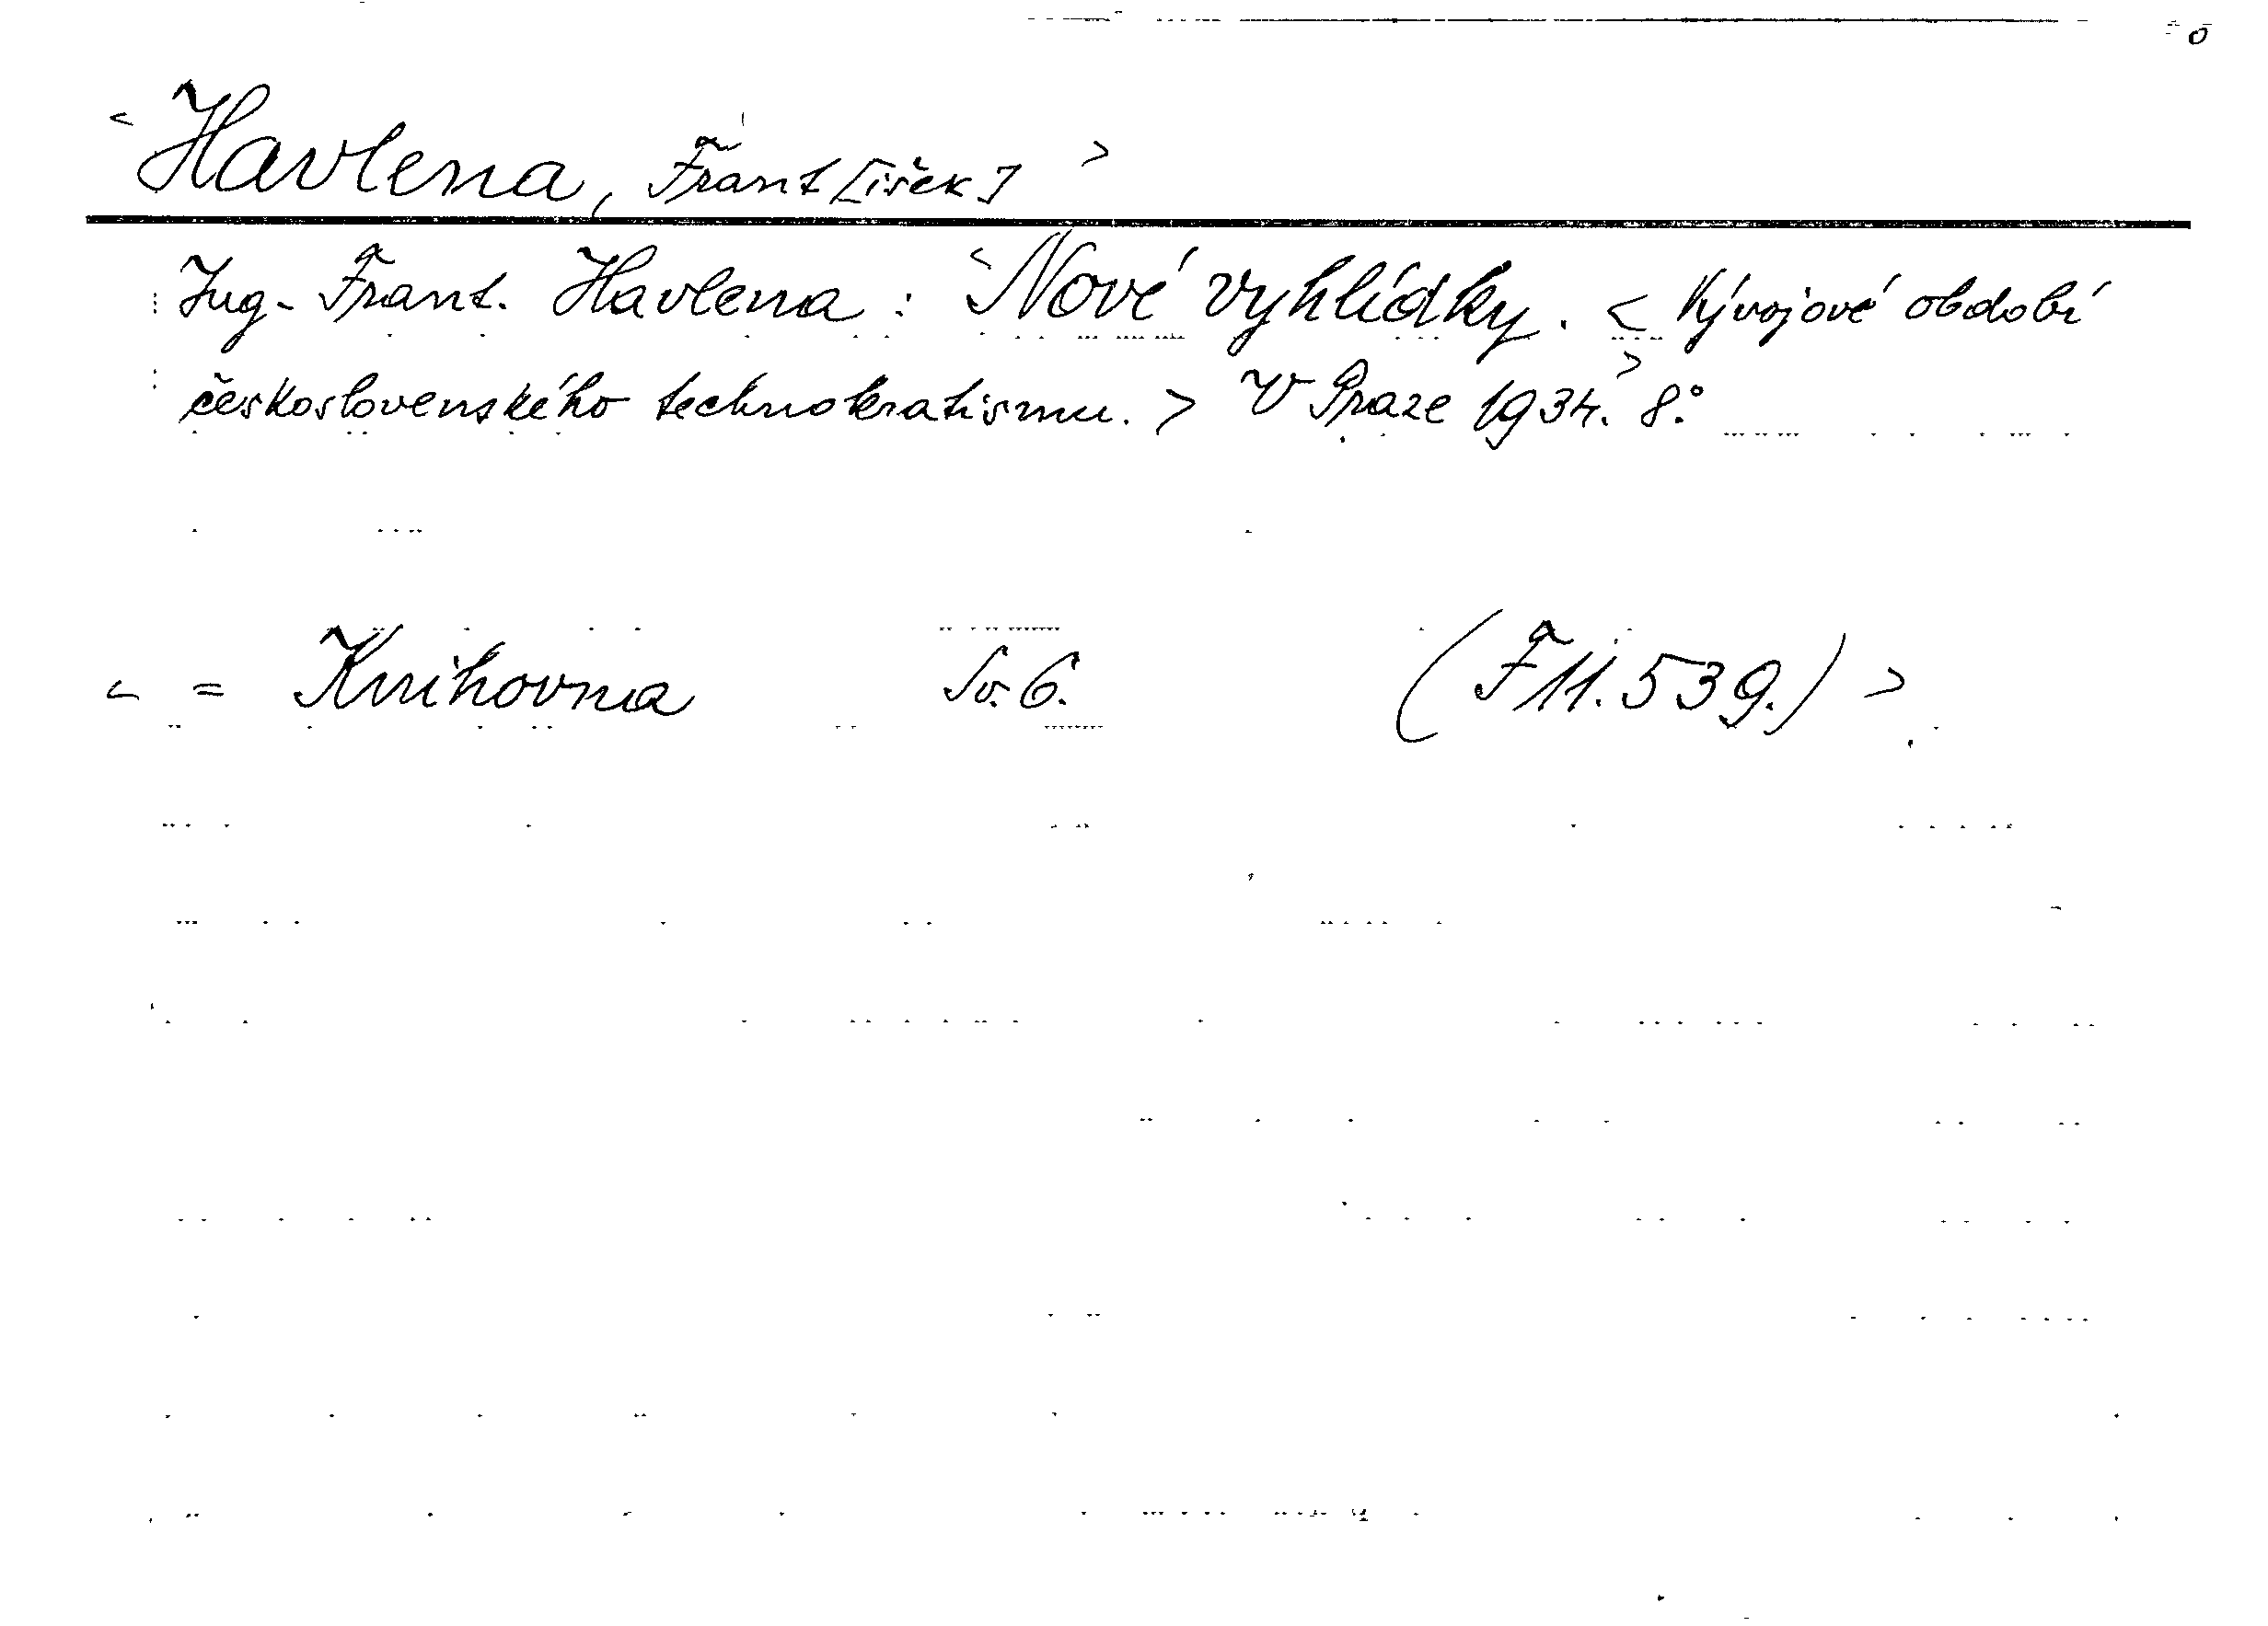 < Havlena, Frant[išek] >
Ing. Frant. Havlena : < Nové vyhlídky. < Vývojové období
československého technokratismu. > V Praze 1934. > 8.°
< = Knihovna Sv. 6. (F 11.539.) >